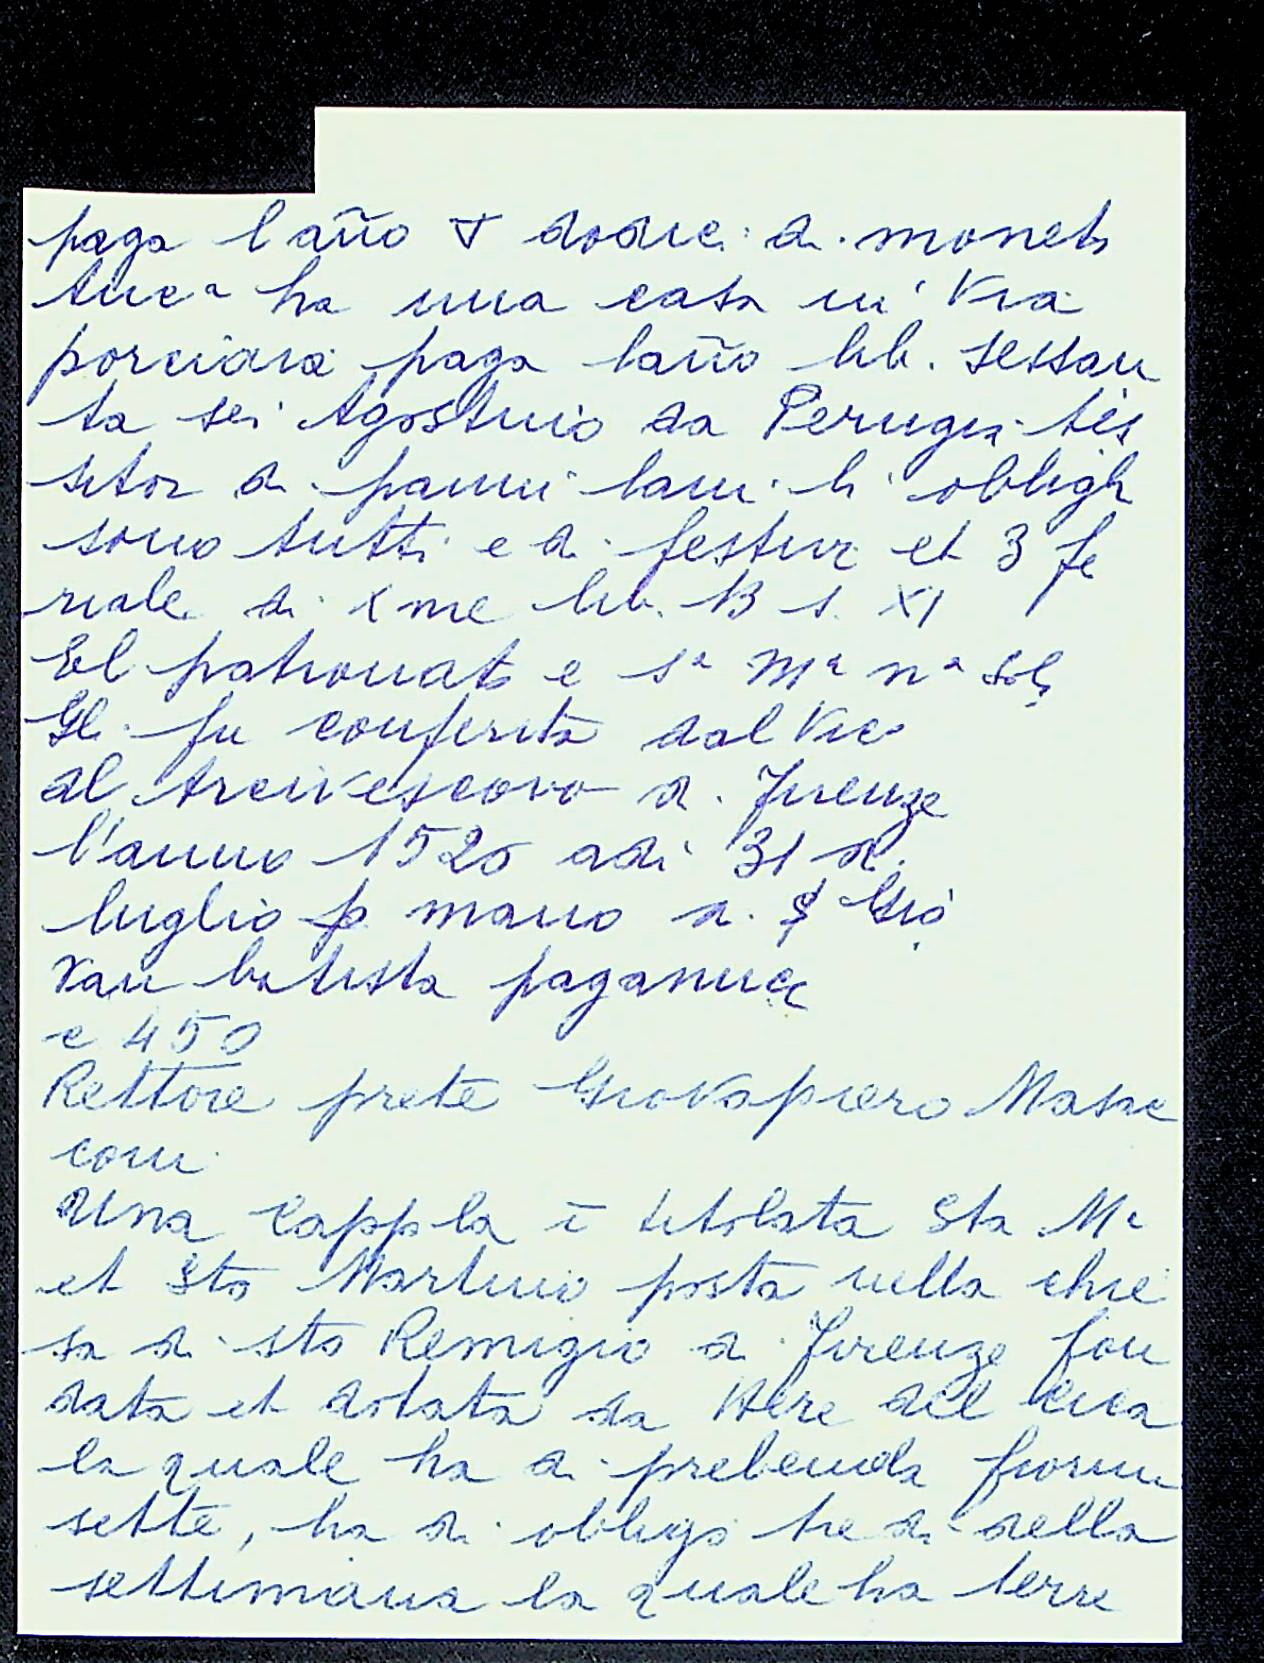 paga l año ∇ dodici di moneta
Anca ha una casa in Via
porciaia paga laño lib. sessan
ta sei Agostino da Perugia tes
sitor di panni lani li obligh
sono tutti e di festivi et 3 fe
riale di x me lib. 13 s. XI
El patronato e sª Mª nª
Gli fu conferita dal Vic
al Arcivescovo di Firenze
l'anno 1520 adi 31 di
luglio p mano di Gio
van batista paganucci
c 450
Rettore prete Giovapiero Masse
coni
Una cappla ī titolata Sta Mª
et Sto Martino posta nella chie
sa di sto Remigio di Firenze fon
data et dotata da del Cica
la quale ha di prebenda fiorini
sette, ha di obligo tre di della
settimana la quale ha terre